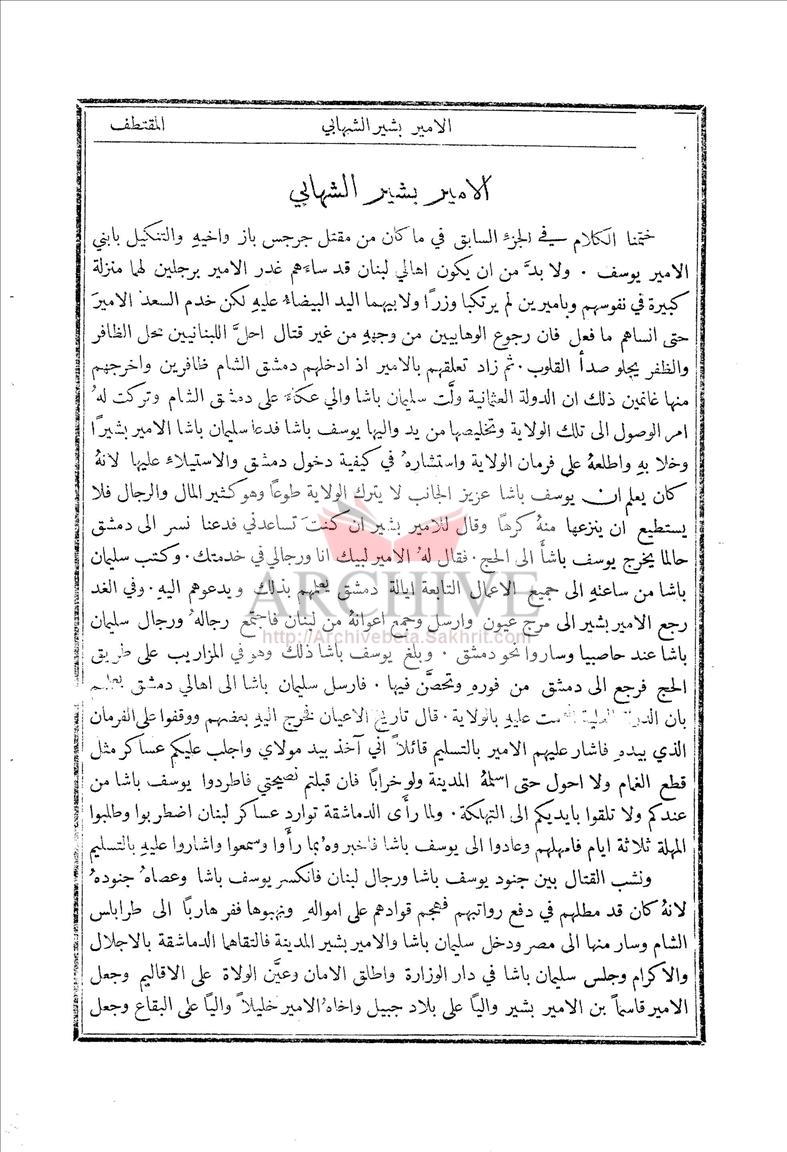 المقتطف الامير بشير الشهابي
الامير بشير الشهابي
ختمنا الكلام في الجزء السابق في ما كان من مقتل جرجس باز واخيهِ والتنكيل بابني
الامير يوسف . ولا بدَّ من ان يكون اهالي لبنان قد ساءَهم غدر الامير برجلين لهما منزلة
كبيرة في نفوسهم وباميرين لم يرتكبا وزرًا ولابيهما اليد البيضاءُ عليهِ لكن خدم السعد الاميرَ
حتى انساهم ما فعل فان رجوع الوهابيين من وجههِ من غير قتال احلَّ اللبنانيين محل الظافر
والظفر يجلو صدأ القلوب . ثم زاد تعلقهم بالامير اذ ادخلهم دمشق الشام ظافرين واخرجهم
منها غانمين ذلك ان الدولة العثمانية ولَّت سليمان باشا والي عكاءَ على دمشق الشام وتركت لهُ
امر الوصول الى تلك الولاية وتخليصها من يد واليها يوسف باشا فدعا سليمان باشا الامير بشيرًا
وخلا بهِ واطلعهُ على فرمان الولاية واستشارهُ في كيفية دخول دمشق والاستيلاء عليها لانهُ
كان يعلم ان يوسف باشا عزيز الجانب لا يترك الولاية طوعًا وهو كثير المال والرجال فلا
يستطيع ان ينزعها منهُ كرهًا وقال للامير بشير ان كنت تساعدني فدعنا نسر الى دمشق
حالما يخرج يوسف باشا الى الحج . فقال لهُ الامير لبيك انا ورجالي في خدمتك . وكتب سليمان
باشا من ساعتهِ الى جميع الاعمال التابعة ايالة دمشق يعلمهم بذلك ويدعوهم اليهِ . وفي الغد
رجع الامير بشير الى مرج عيون وارسل وجمع اعوانهُ من لبنان فاجتمع رجالهُ ورجال سليمان
باشا عند حاصبيا وساروا نحو دمشق . وبلغ يوسف باشا ذلك وهو في المزاريب على طريق
الحج فرجع الى دمشق من فورهِ وتحصَّن فيها . فارسل سليمان باشا الى اهالي دمشق يعلمهم
بان الدولة العلية عليهِ بالولاية . قال تاريخ الاعيان فخرج اليهِ بعضهم ووقفوا على الفرمان
الذي بيدهِ فاشار عليهم الامير بالتسليم قائلاً اني آخذ بيد مولاي واجلب عليكم عساكر مثل
قطع الغمام ولا احول حتى اسلمهُ المدينة ولو خرابًا فان قبلتم نصيحتي فاطردوا يوسف باشا من
عندكم ولا تلقوا بايديكم الى التهلكة . ولما رأَى الدماشقة توارد عساكر لبنان اضطربوا وطلبوا
المهلة ثلاثة ايام فامهلهم وعادوا الى يوسف باشا فاخبروهُ بما رأَوا وسمعوا واشاروا عليهِ بالتسليم
ونشب القتال بين جنود يوسف باشا ورجال لبنان فانكسر يوسف باشا وعصاهُ جنودهُ
لانهُ كان قد مطلهم في دفع رواتبهم فهجم قوادهم على اموالهِ ونهبوها ففر هاربًا الى طرابلس
الشام وسار منها الى مصر ودخل سليمان باشا والامير بشير المدينة فالتقاهما الدماشقة بالاجلال
والاكرام وجلس سليمان باشا في دار الوزارة واطلق الامان وعيَّن الولاة على الاقاليم وجعل
الامير قاسمًا بن الامير بشير واليًا على بلاد جبيل واخاهُ الامير خليلاً واليًا على البقاع وجعل
ARCHIVE
http://Archivebeta.Sakhrit.com